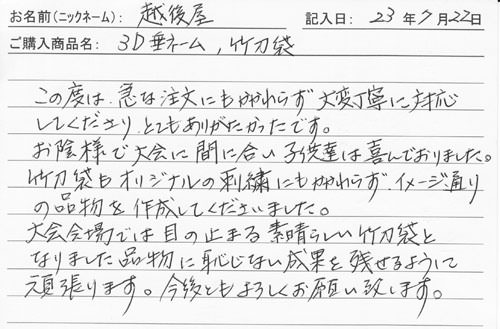 お名前(ニックネーム): 越後屋 記入日: 23年7月22日
ご購入商品名: 3D垂ネーム, 竹刀袋
この度は、急な注文にもかかわらず 大変丁寧に対応
してくださり、とてもありがたかったです。
お陰様で大会に間に合い子供達は喜んでおりました。
竹刀袋もオリジナルの刺繍にもかかわらず、イメージ通り
の品物を作成してくださいました。
大会会場では目の止まる素晴らしい竹刀袋と
なりました品物に恥じない成果を残せるように
頑張ります。今後ともよろしくお願い致します。